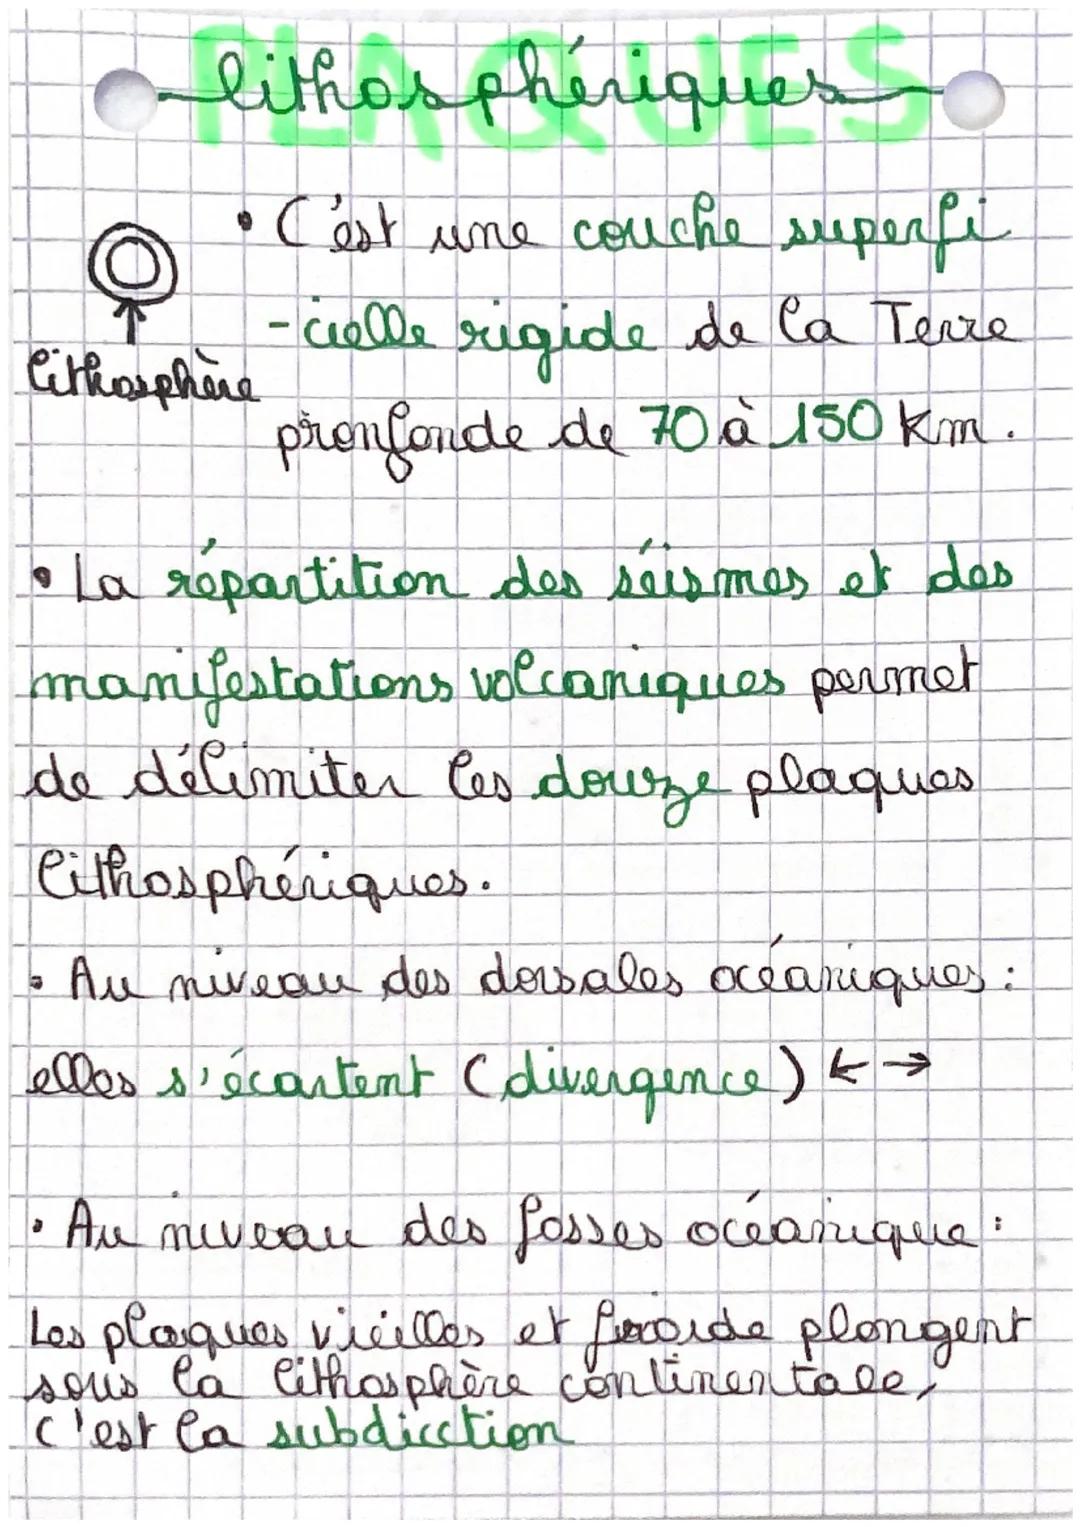 PLAQUES
lithosphériques
• C'est une couche superfi
-cielle rigide de la Terre
lithosphère
pronfonde de 70 à 150 km.
• La répartition des séismes et des
manifestations volcaniques permet
de délimiter les douze plaques
lithosphériques.
• Au niveau des dorsales océaniques :
elles s'écartent (divergence) ← →
• Au niveau des fosses océanique :
Les plaques vieilles et froide plongent
sous la lithosphère continentale,
c'est la subdicction